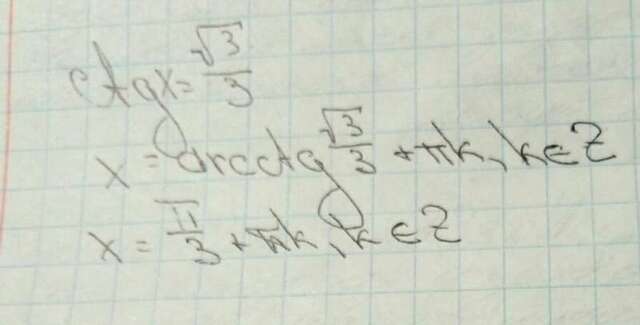 ctgx = √3/3
x = arcctg √3/3 + πk, k ∈ Z
x = π/3 + πk, k ∈ Z